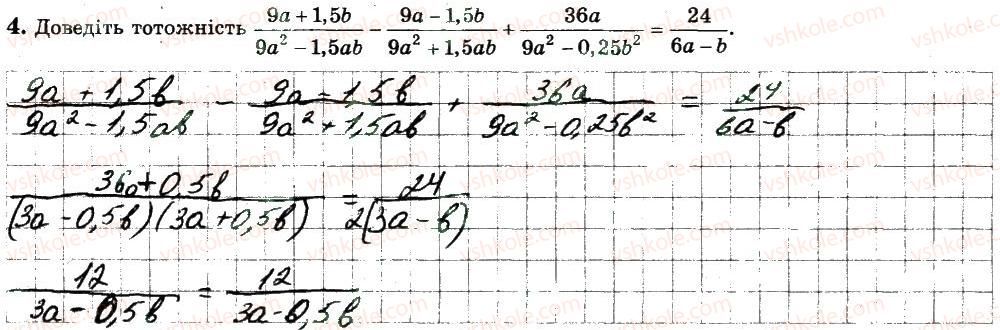 4. Доведіть тотожність (9a + 1,5b)/(9a² − 1,5ab) − (9a − 1,5b)/(9a² + 1,5ab) + 36a/(9a² − 0,25b²) = 24/(6a − b).
(9a + 1,5b)/(9a² − 1,5ab) − (9a − 1,5b)/(9a² + 1,5ab) + 36a/(9a² − 0,25b²) = 24/(6a − b)
(36a + 0,5b)/((3a − 0,5b)(3a + 0,5b)) = 24/(2(3a − b))
12/(3a − 0,5b) = 12/(3a − 0,5b)